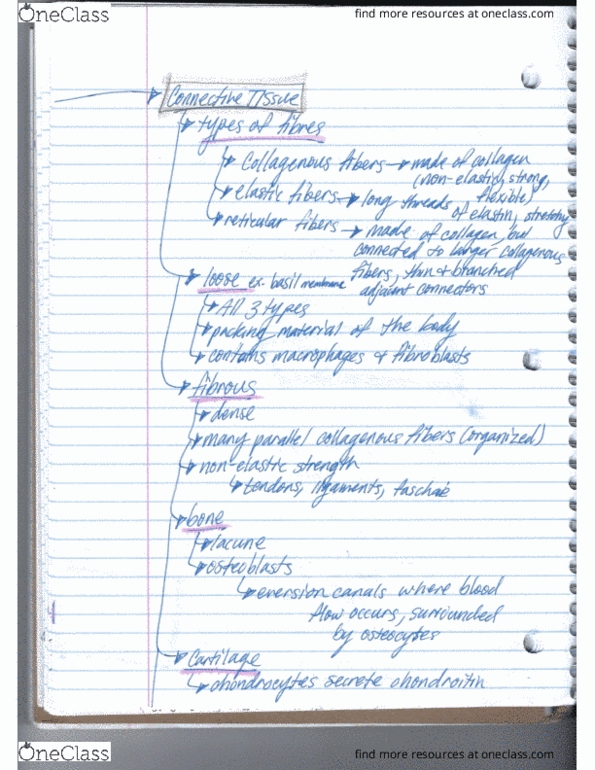 OneClass
find more resources at oneclass.com
Connective Tissue
types of fibres
Collagenous fibers → made of collagen
(non-elastic, strong,
flexible)
elastic fibers → long threads
of elastin, stretchy
reticular fibers → made of collagen, but
connected to larger collagenous
fibers, thin & branched
adjacent connectors
loose ex. basil membrane
All 3 types
packing material of the body
contains macrophages & fibroblasts
fibrous
dense
many parallel collagenous fibers (organized)
non-elastic strength
tendons, ligaments, faschae
bone
lacune
osteoblasts
eversion canals where blood
flow occurs, surrounded
by osteocytes
Cartilage
chondrocytes secrete chondroitin
OneClass
find more resources at oneclass.com